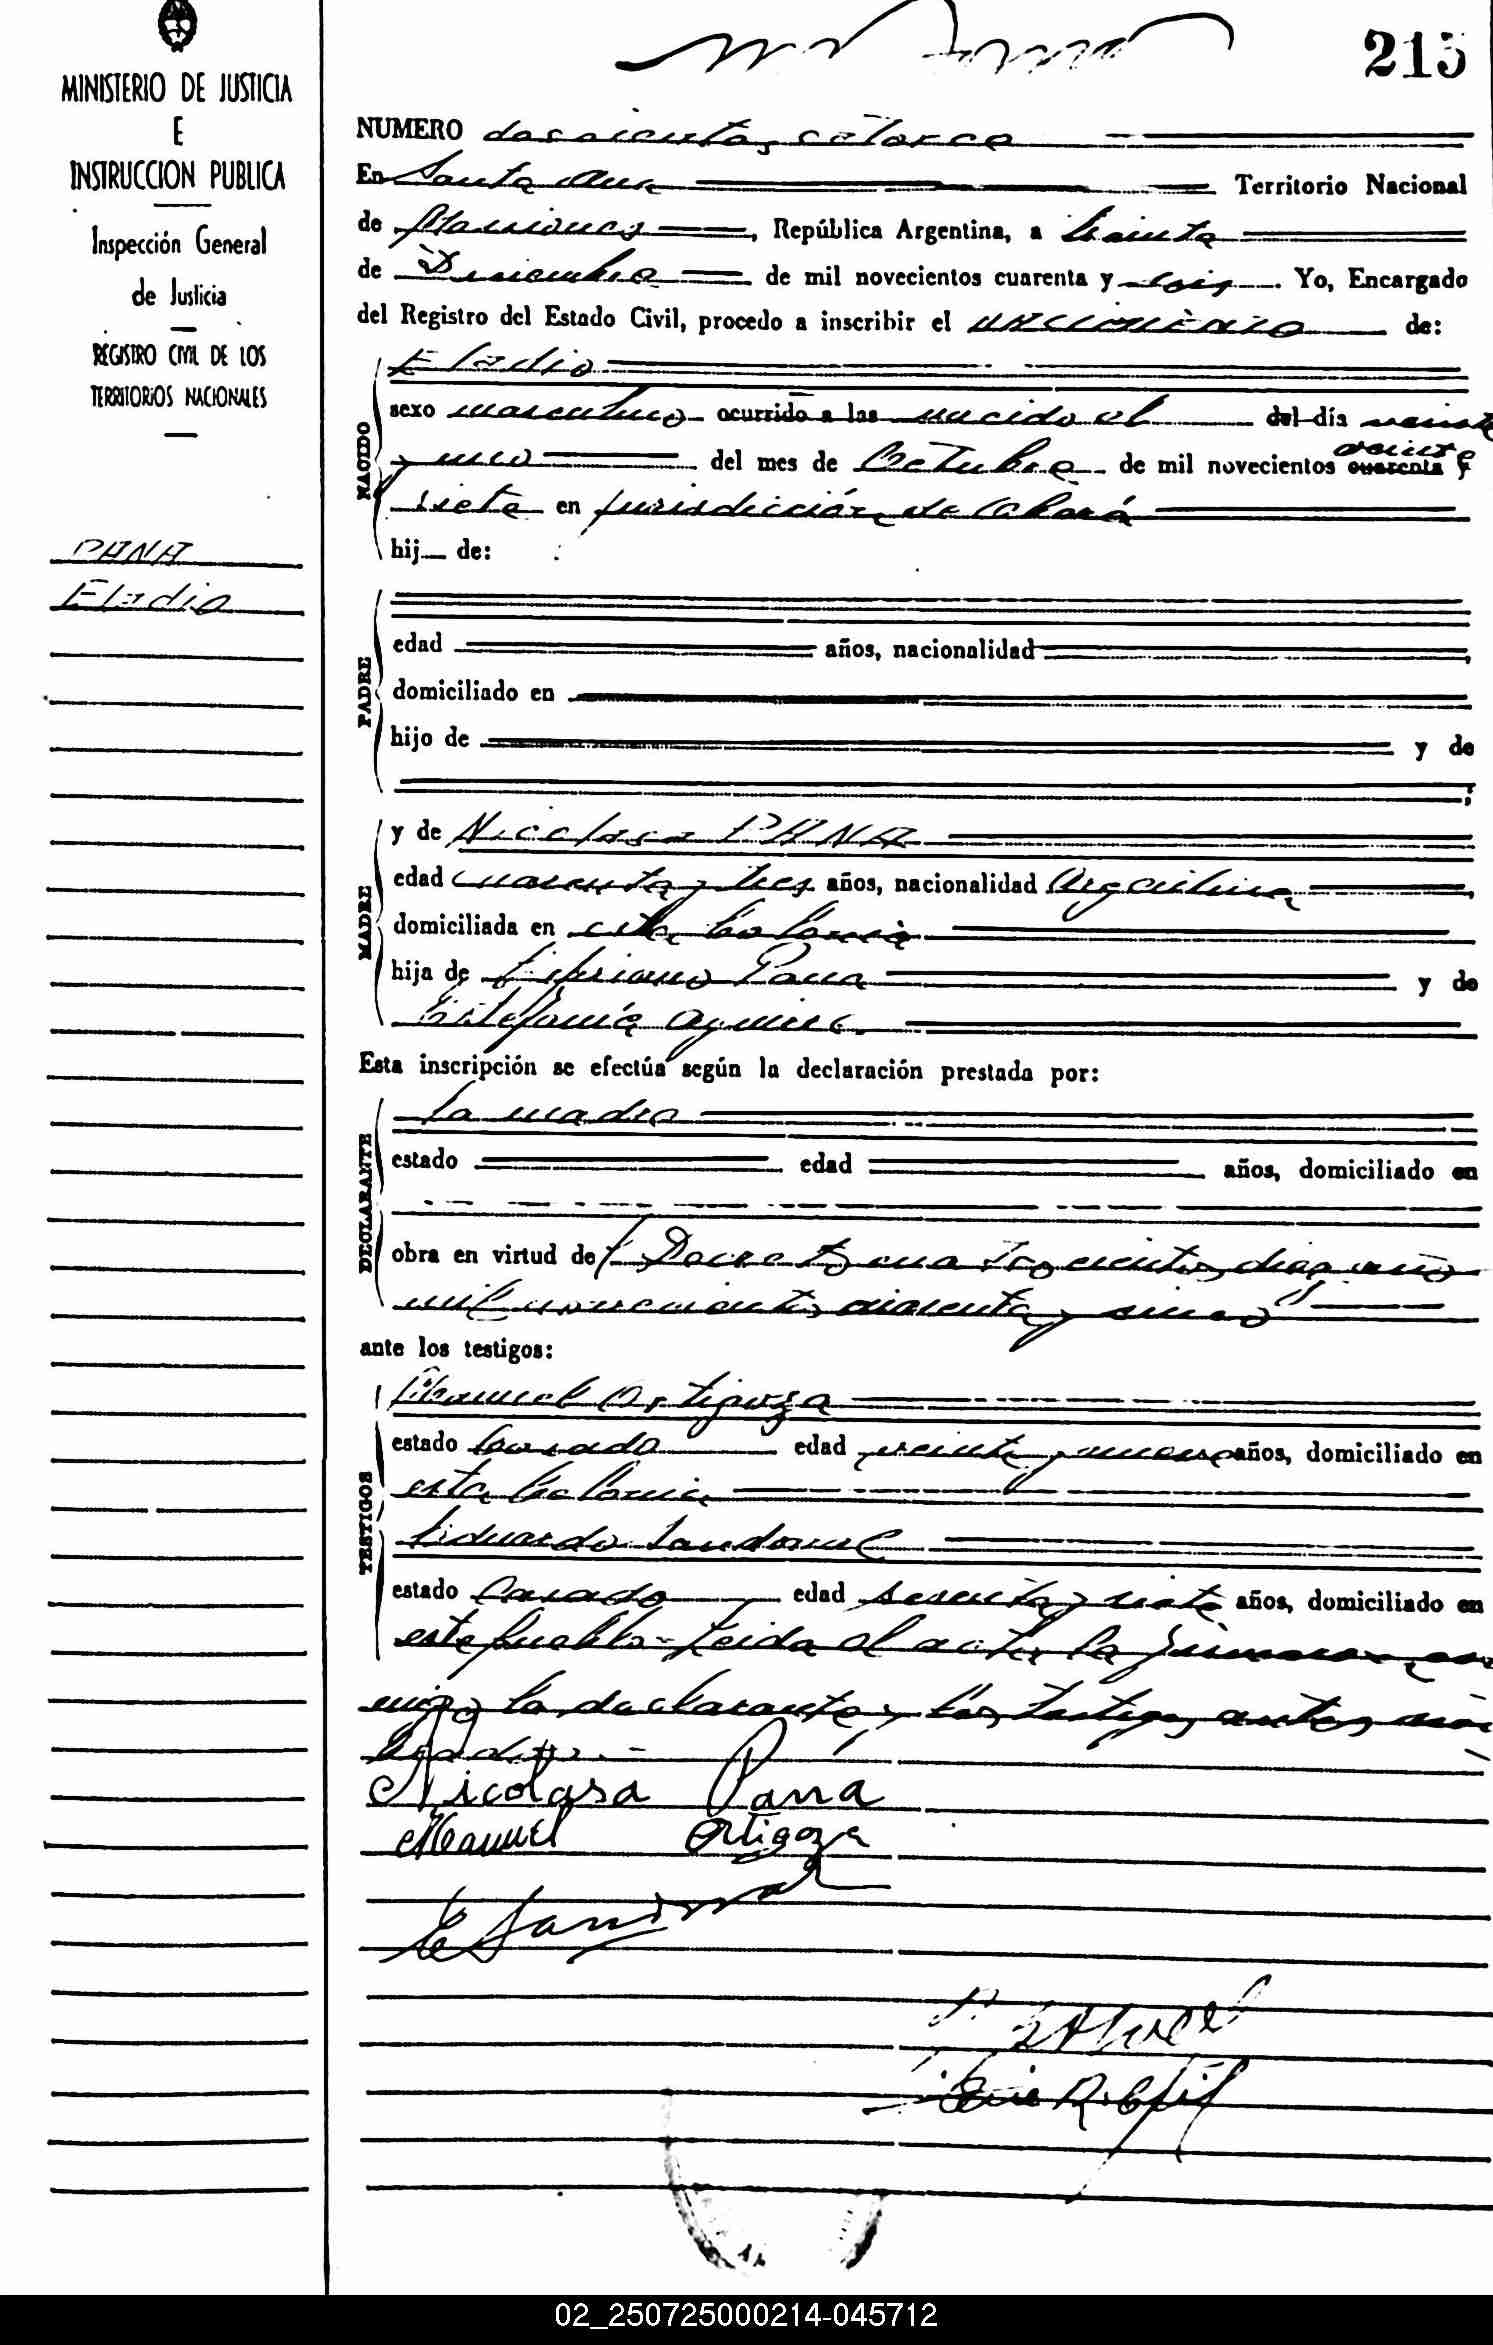 215
MINISTERIO DE JUSTICIA
E
INSTRUCCION PUBLICA
Inspección General
de Justicia
REGISTRO CIVIL DE LOS
TERRITORIOS NACIONALES
PANA
Eladio
NUMERO doscientos catorce
En Santa Ana Territorio Nacional
de Misiones, República Argentina, a treinta
de Diciembre de mil novecientos cuarenta y seis. Yo, Encargado
del Registro del Estado Civil, procedo a inscribir el nacimiento de:
NACIDO
Eladio
sexo masculino ocurrido a las nacido el del día veinte
y uno del mes de Octubre de mil novecientos cuarenta veinte y
siete en jurisdicción de
hij de:
PADRE
edad años, nacionalidad
domiciliado en
hijo de y de
MADRE
y de Nicolasa PANA
edad cuarenta y tres años, nacionalidad Argentina
domiciliada en esta Colonia
hija de Cipriano Pana y de
Estefanía Aguirre
Esta inscripción se efectúa según la declaración prestada por:
DECLARANTE
La madre
estado edad años, domiciliado en
obra en virtud de Decreto cuatrocientos diez año
mil novecientos cuarenta y cinco
ante los testigos:
TESTIGOS
Manuel Ortigoza
estado Casado edad veinte y nueve años, domiciliado en
esta Colonia
Eduardo Sandoval
estado Casado edad sesenta y siete años, domiciliado en
este pueblo - Leida el acta la firmaron con
migo la declarante y los testigos antes nom
brados.-
Nicolasa Pana
Manuel Ortigoza
E Sandoval
02_250725000214-045712